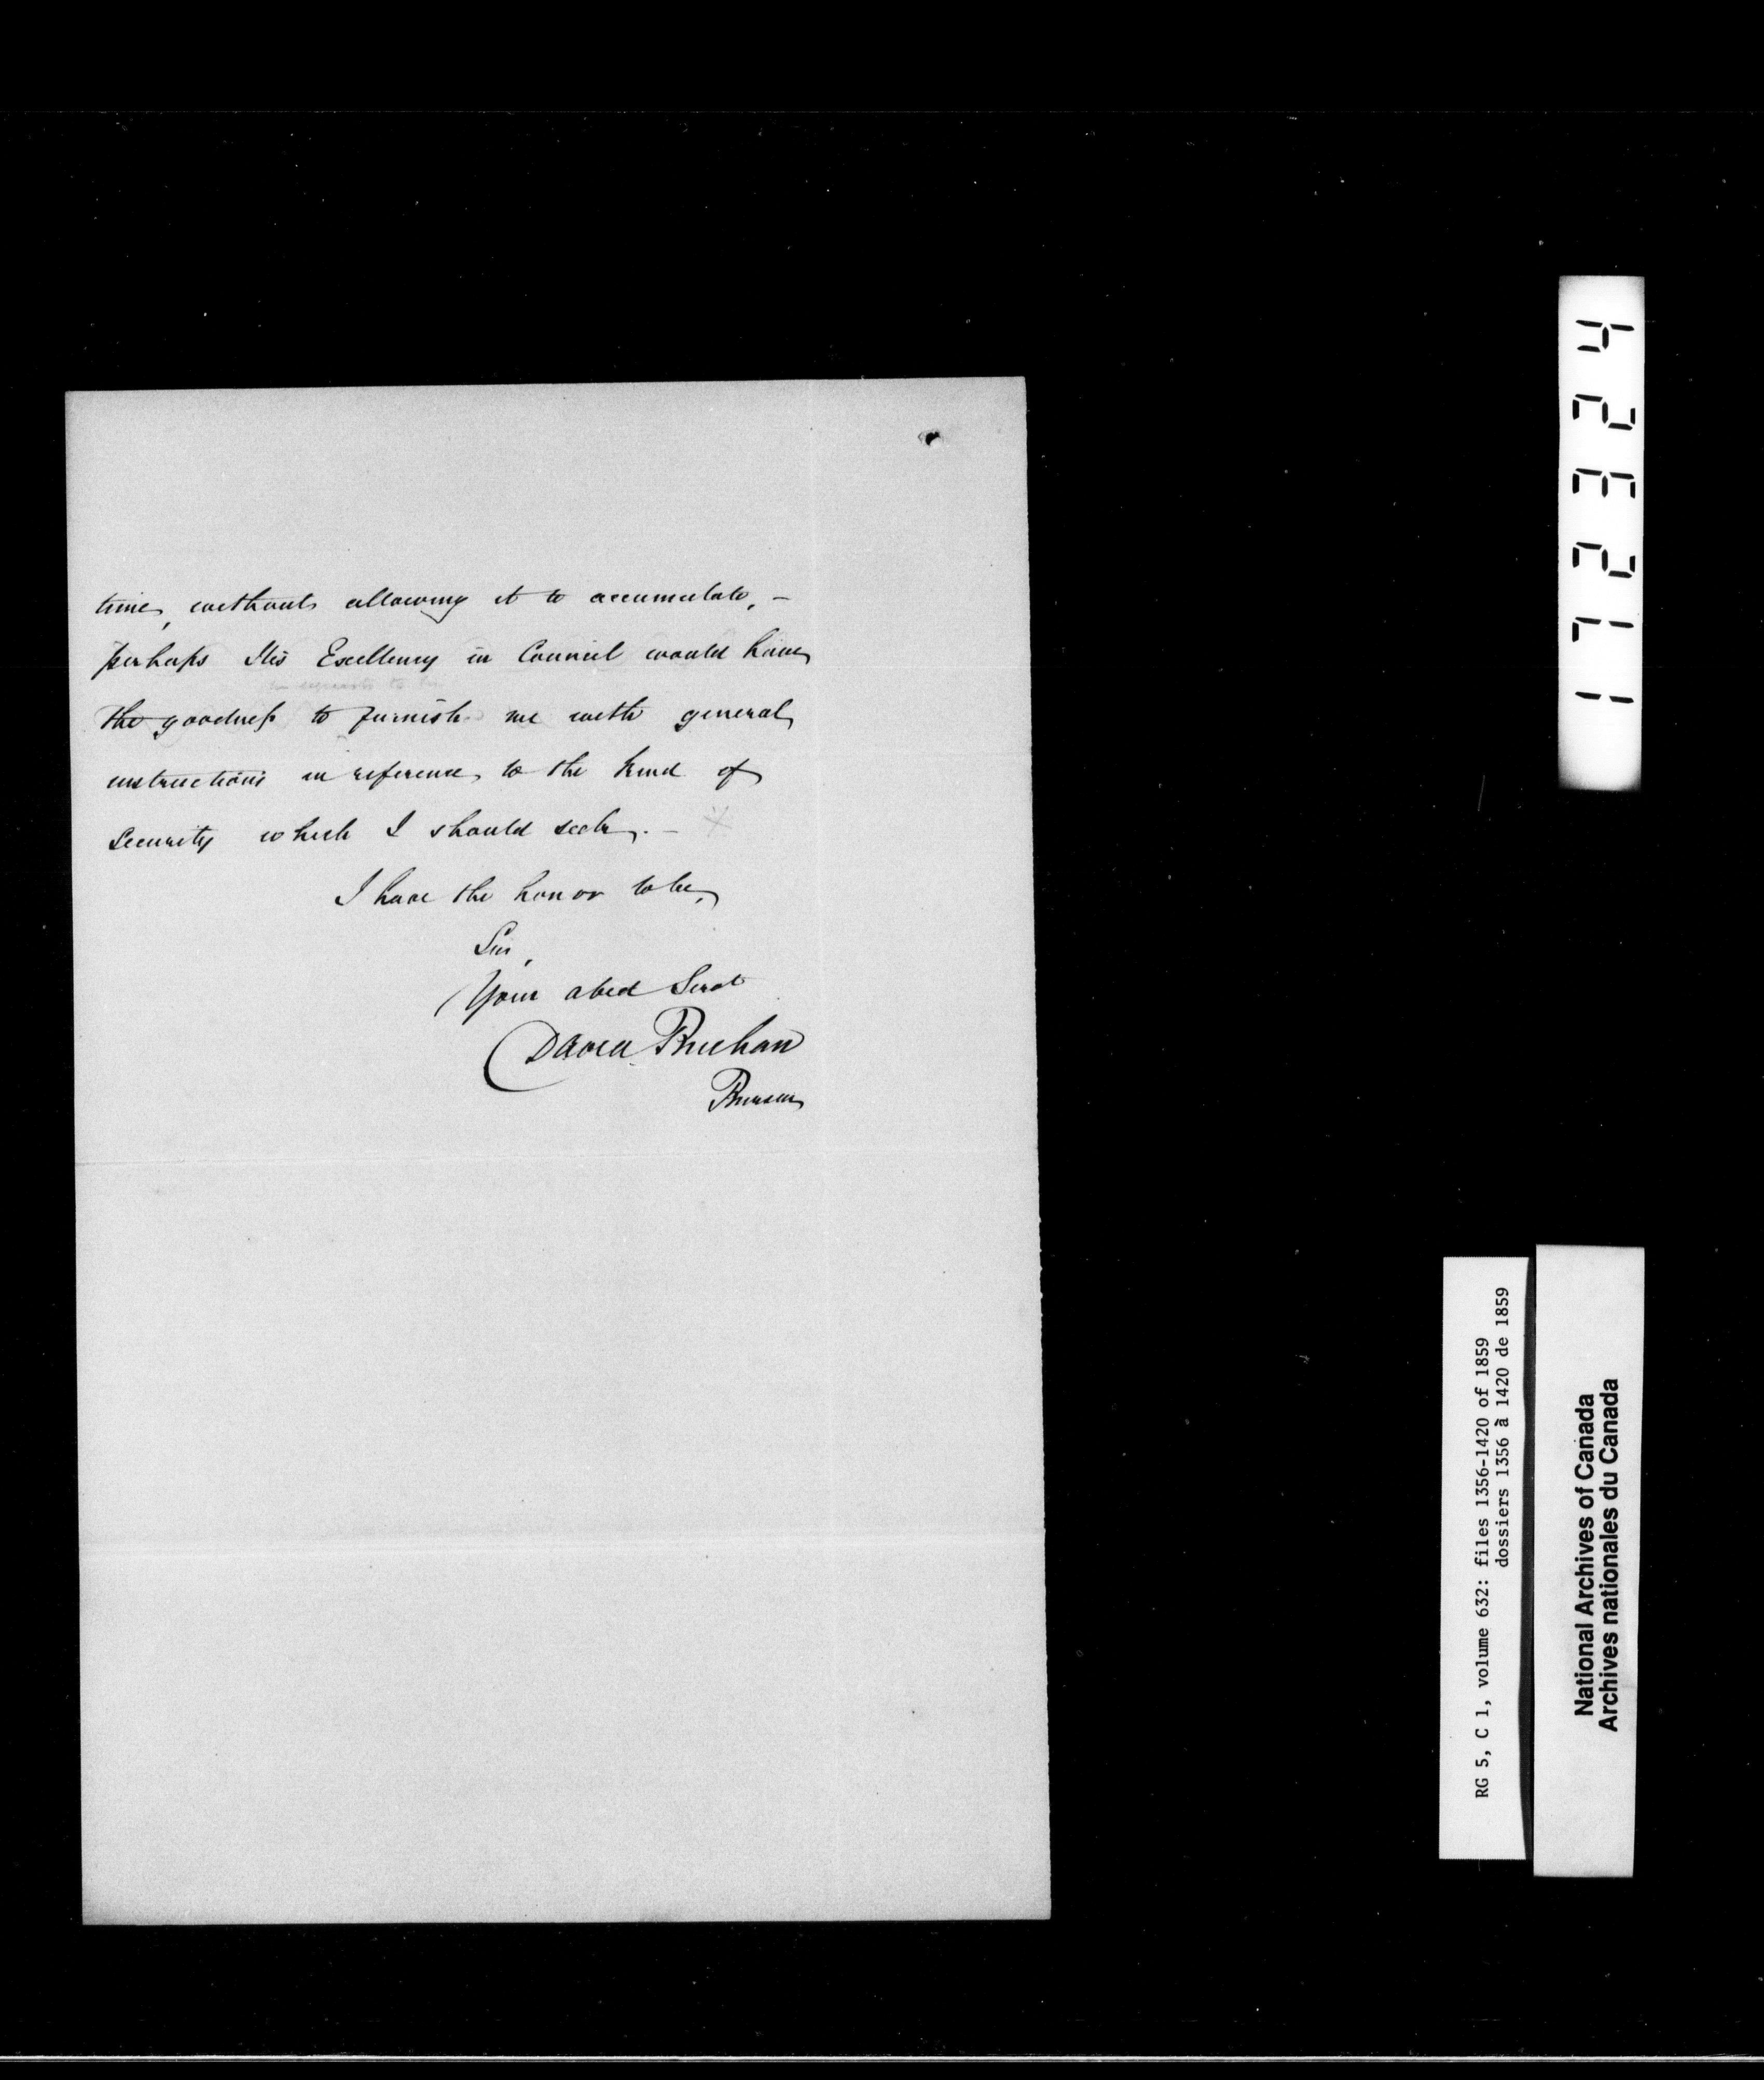 time, without allowing it to accumulate, –
perhaps His Excellency in Council would have
the goodness to furnish me with general
instructions in reference to the kind of
Security which I should seek. –
I have the honor to be,
Sir,
Your obed Servt
David Buchan
Bursar
172324
RG 5, C 1, volume 632: files 1356-1420 of 1859
dossiers 1356 à 1420 de 1859
National Archives of Canada
Archives nationales du Canada